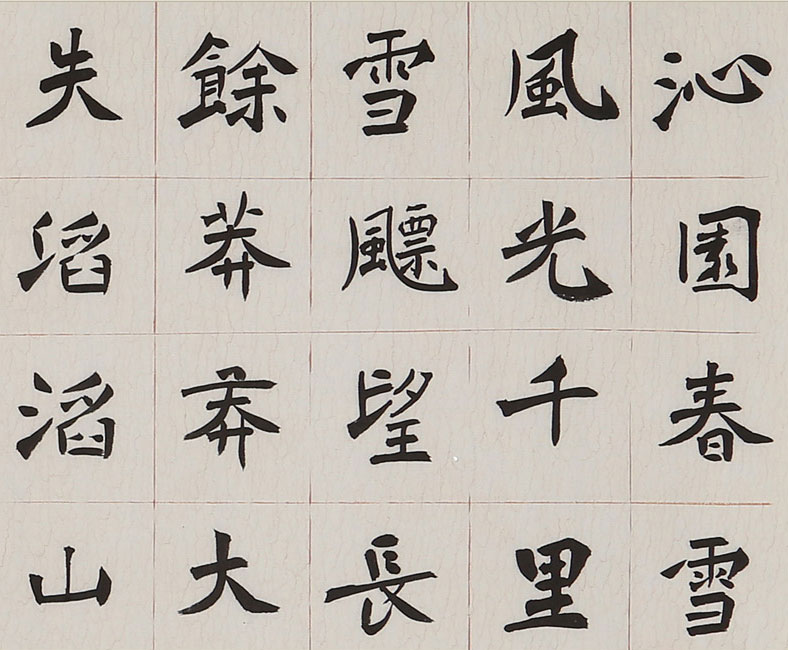 沁園春雪
風光千里
雪飃望長
餘莽莽大
失滔滔山